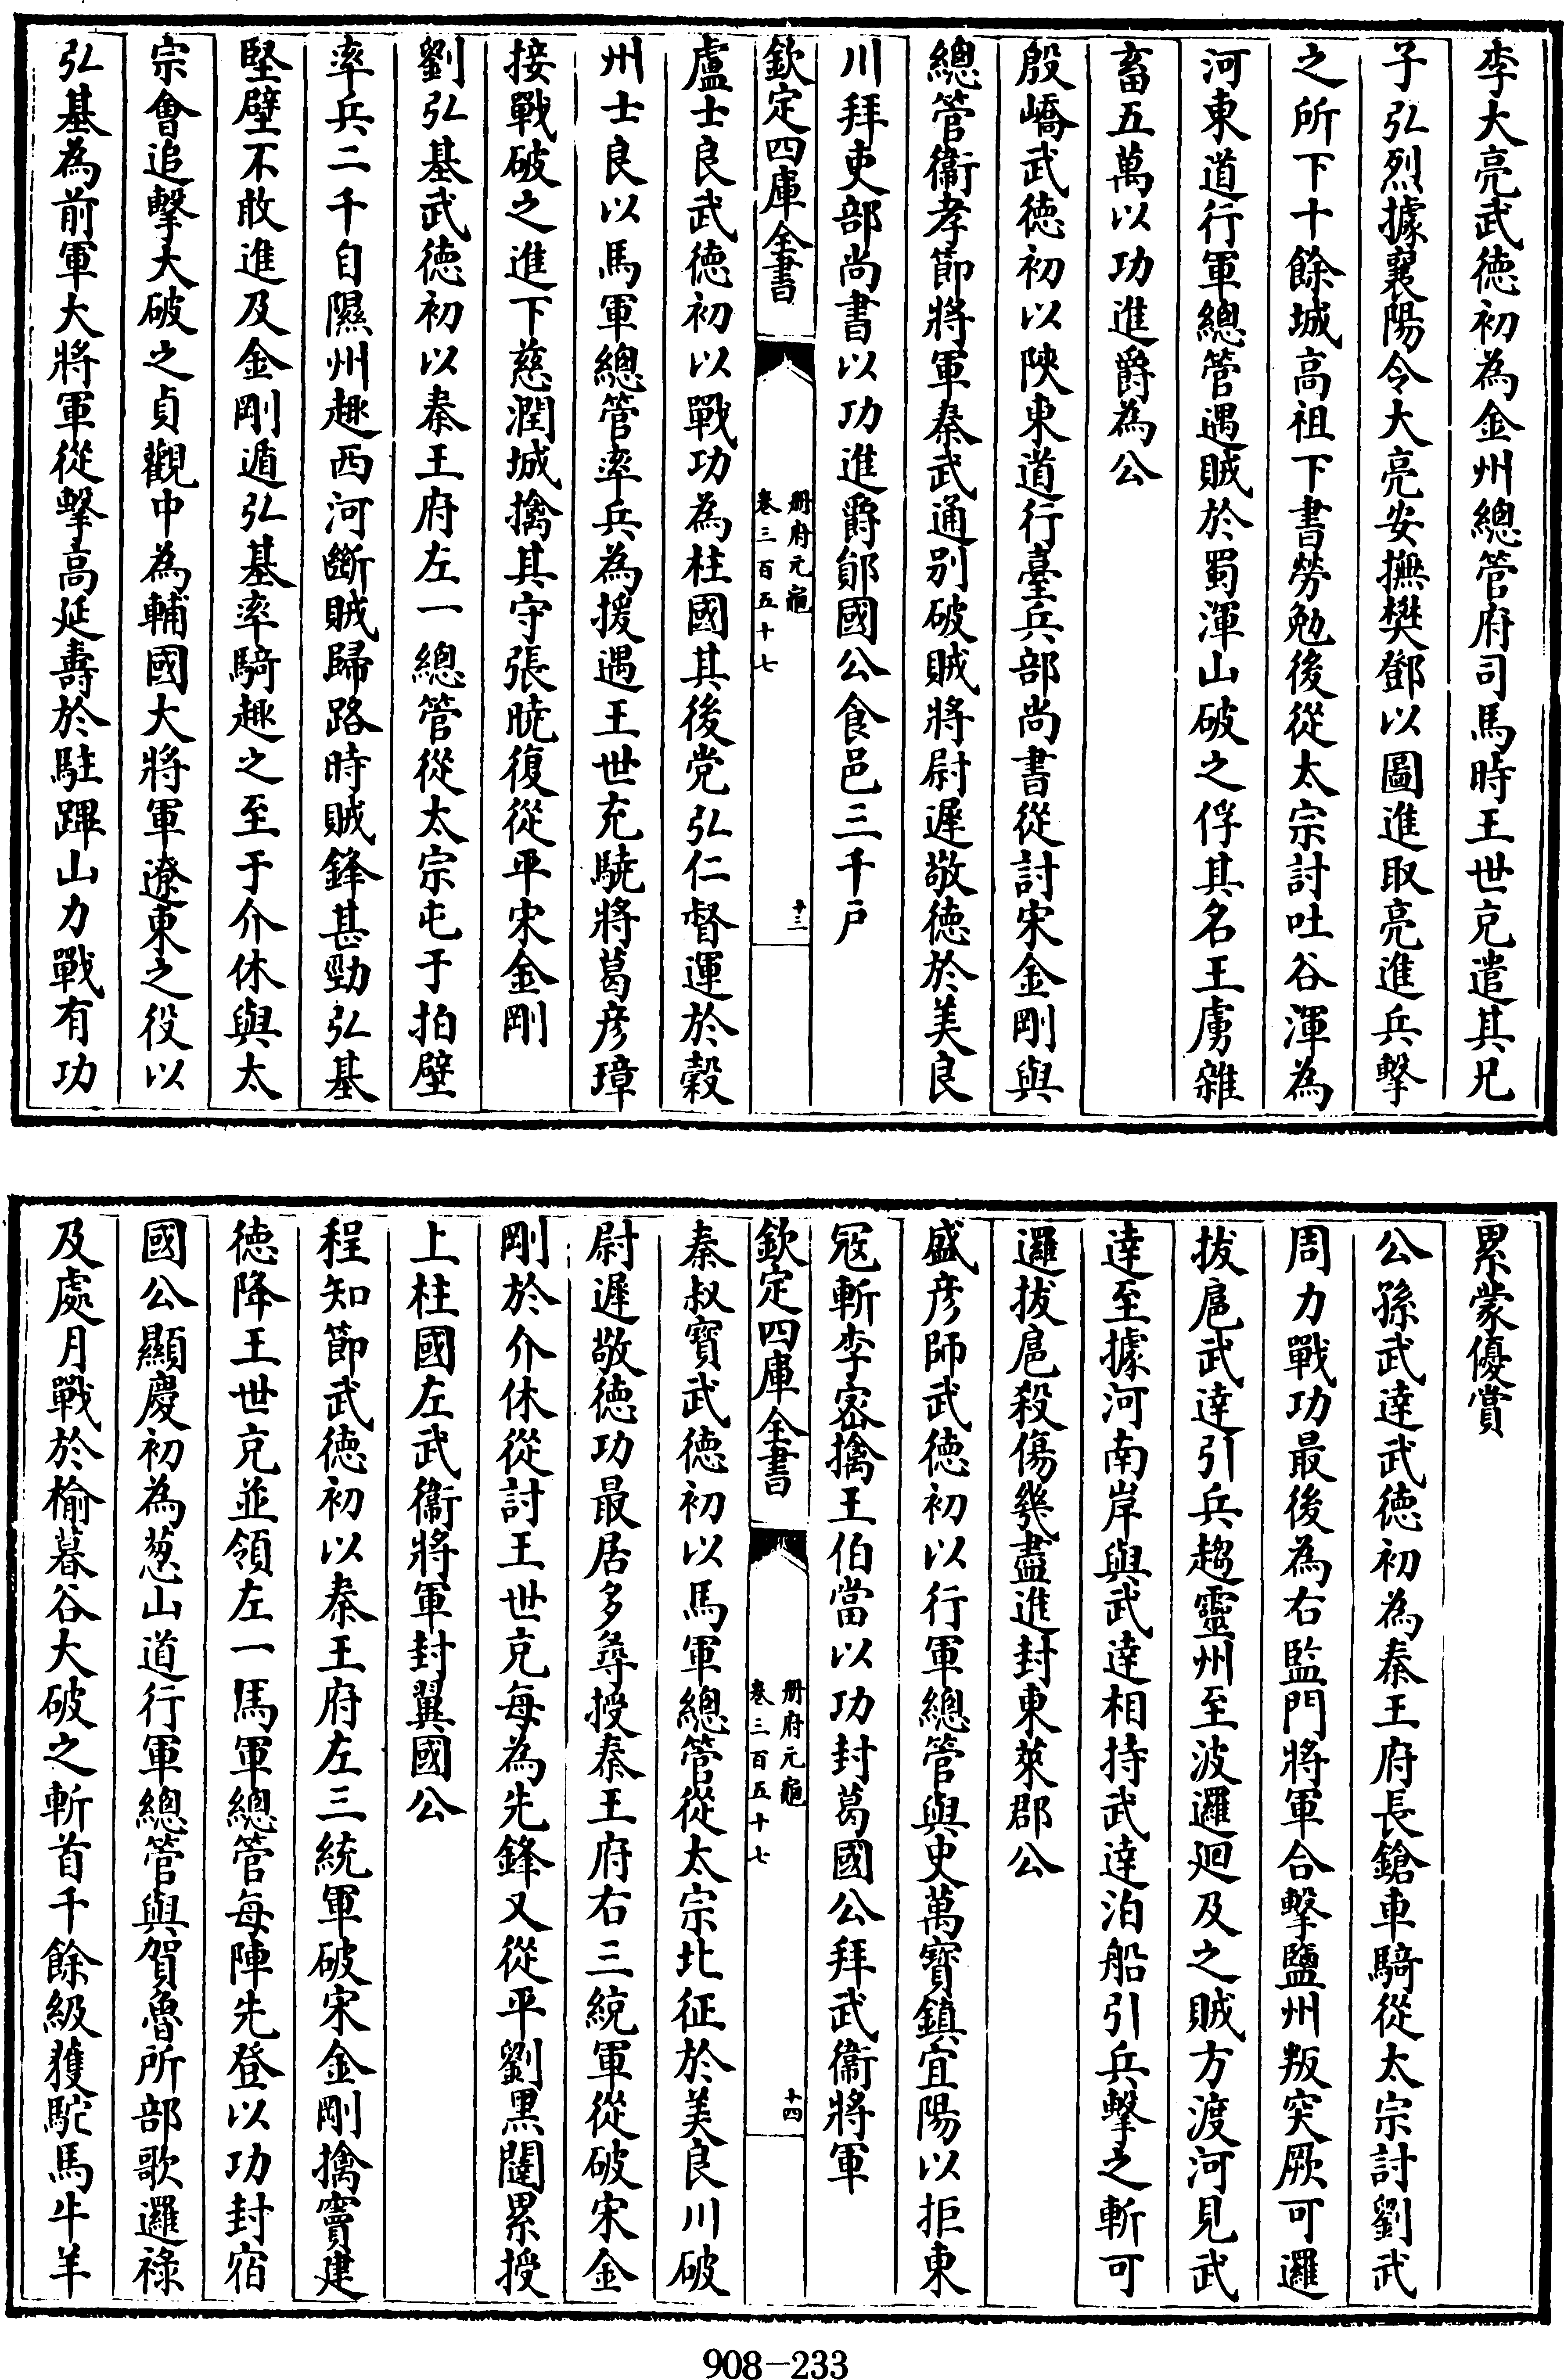 李大亮武徳初為金州總管府司馬時王世充遣其兄
子弘烈據襄陽令大亮安撫樊鄧以圖進取亮進兵擊
之所下十餘城高祖下書勞勉後從太宗討吐谷渾為
河東道行軍總管遇賊於蜀渾山破之俘其名王虜雜
畜五萬以功進爵為公
殷嶠武徳初以陜東道行臺兵部尚書從討宋金剛與
總管衞孝節將軍秦武通別破賊將尉遲敬徳於美良
川拜吏部尚書以功進爵鄖國公食邑三千户
欽定四庫全書
册府元龜
卷三百五十七
十三
盧士良武徳初以戰功為柱國其後党弘仁督運於穀
州士良以馬軍總管率兵為援遇王世充驍將葛彦璋
接戰破之進下慈澗城擒其守張曉復從平宋金剛
劉弘基武徳初以秦王府左一總管從太宗屯于拍壁
率兵二千自隰州趣西河斷賊歸路時賊鋒甚勁弘基
堅壁不敢進及金剛遁弘基率騎趣之至于介休與太
宗會追擊大破之貞觀中為輔國大將軍遼東之役以
弘基為前軍大將軍從擊高延壽於駐蹕山力戰有功
累蒙優賞
公孫武達武徳初為秦王府長鎗車騎從太宗討劉武
周力戰功最後為右監門將軍合擊鹽州叛突厥可邏
拔扈武達引兵趨靈州至波邏廻及之賊方渡河見武
達至據河南岸與武達相持武達泊船引兵擊之斬可
邏拔扈殺傷幾盡進封東萊郡公
盛彦師武徳初以行軍總管與史萬寳鎮宜陽以拒東
冦斬李密擒王伯當以功封葛國公拜武衞將軍
欽定四庫全書
册府元龜
卷三百五十七
十四
秦叔寳武徳初以馬軍總管從太宗北征於美良川破
尉遲敬徳功最居多尋授秦王府右三統軍從破宋金
剛於介休從討王世充每為先鋒又從平劉黒闥累授
上柱國左武衞將軍封翼國公
程知節武徳初以秦王府左三統軍破宋金剛擒竇建
徳降王世充並領左一馬軍總管每陣先登以功封宿
國公顯慶初為葱山道行軍總管與賀魯所部歌邏禄
及處月戰於榆慕谷大破之斬首千餘級獲駝馬牛羊
908—233